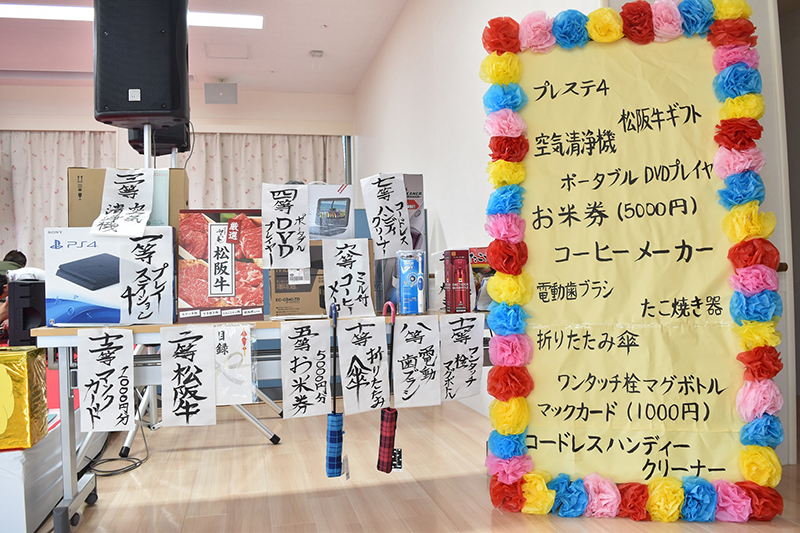 三等
空気
清浄機
PS4
一等
プレイ
ステーション
4
厳選
松阪牛
四等
ポータブル
DVD
プレイヤー
七等
コードレス
ハンディ
クリーナー
六等
ミル付
コーヒーメーカー
十二等
マックカード
1000円分
二等
松阪牛
目録
五等
5000円分
お米券
十等
折りたたみ
傘
八等
電動
歯ブラシ
十一等
ワンタッチ
栓
マグボトル
プレステ4
松阪牛ギフト
空気清浄機
ポータブル DVDプレイヤ
お米券(5000円)
コーヒーメーカー
電動歯ブラシ
たこ焼き器
折りたたみ傘
ワンタッチ栓マグボトル
マックカード(1000円)
コードレスハンディー
クリーナー